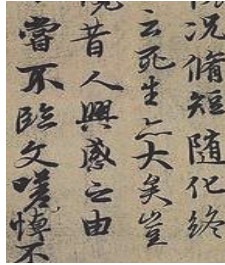 况脩短随化终
云死生亦大矣豈
昔人興感之由
嘗不臨文嗟悼不